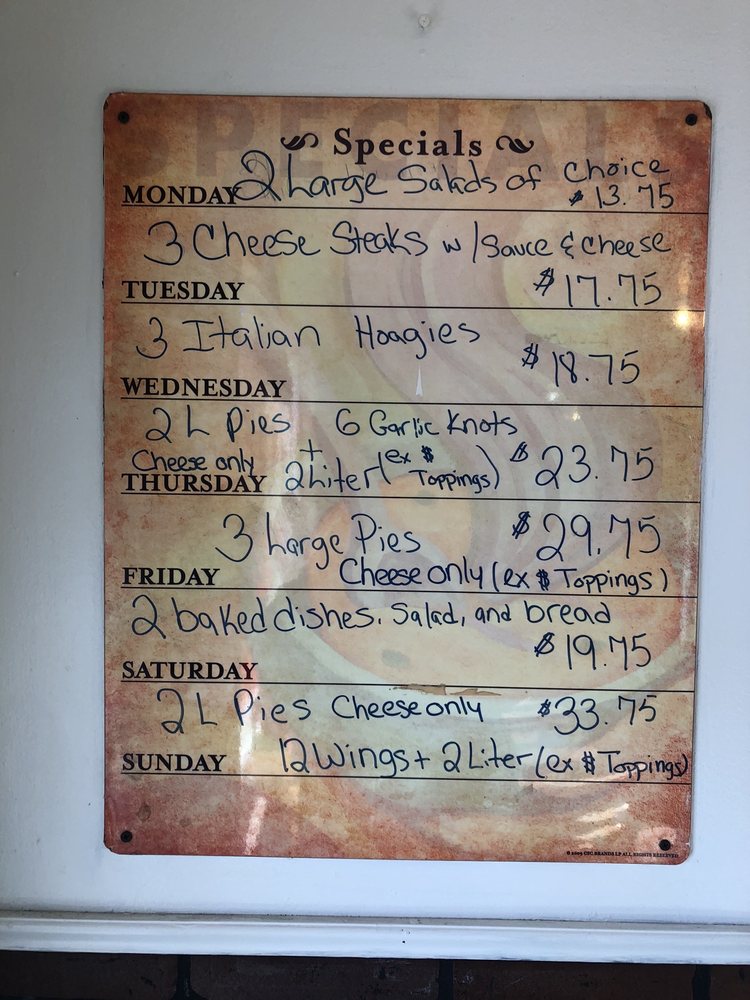 SPECIALS
Specials
2 Large Salads of Choice
MONDAY $13.75
3 Cheese Steaks w/Sauce & Cheese
TUESDAY $17.75
3 Italian Hoagies
$18.75
WEDNESDAY
2 L Pies 6 Garlic Knots
Cheese only + 2Liter (ex $ Toppings) $23.75
THURSDAY
3 Large Pies $29.75
FRIDAY Cheese only (ex $ Toppings)
2 baked dishes, Salad, and bread
$19.75
SATURDAY
2 L Pies Cheese only $33.75
SUNDAY 12 Wings + 2 Liter (ex $ Toppings)
© 2009 CSC BRANDS LP ALL RIGHTS RESERVED